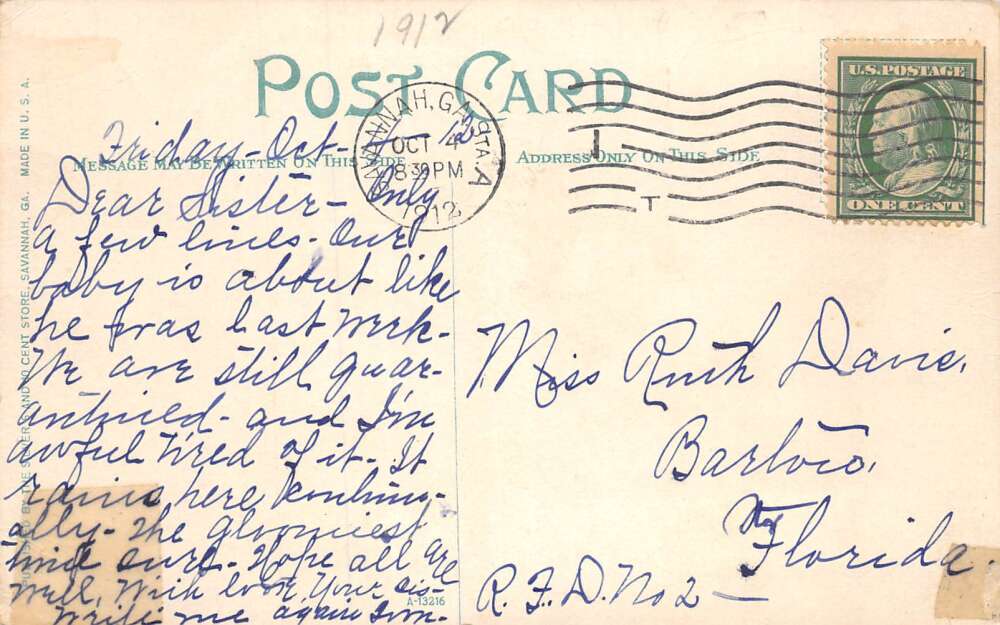 1912
POST CARD
Friday - Oct - 4 - 12
MESSAGE MAY BE WRITTEN ON THIS SIDE
ADDRESS ONLY ON THIS SIDE
SAVANNAH, GA. STA. A
OCT 4
8 30 PM
1912
U.S. POSTAGE
ONE CENT
Dear Sister - Only
a few lines - Our
baby is about like
he was last week -
We are still quar-
antined - and I'm
awful tired of it - It
rains here continu-
ally - the gloomiest
time ever - Hope all are
well, With love, Your sis-
write me again soon -
Miss Ruth Davis,
Bartow,
Florida
R.F.D. No 2 -
A-13216
PUBLISHED BY THE SILVER 5 AND 10 CENT STORE, SAVANNAH, GA. MADE IN U. S. A.